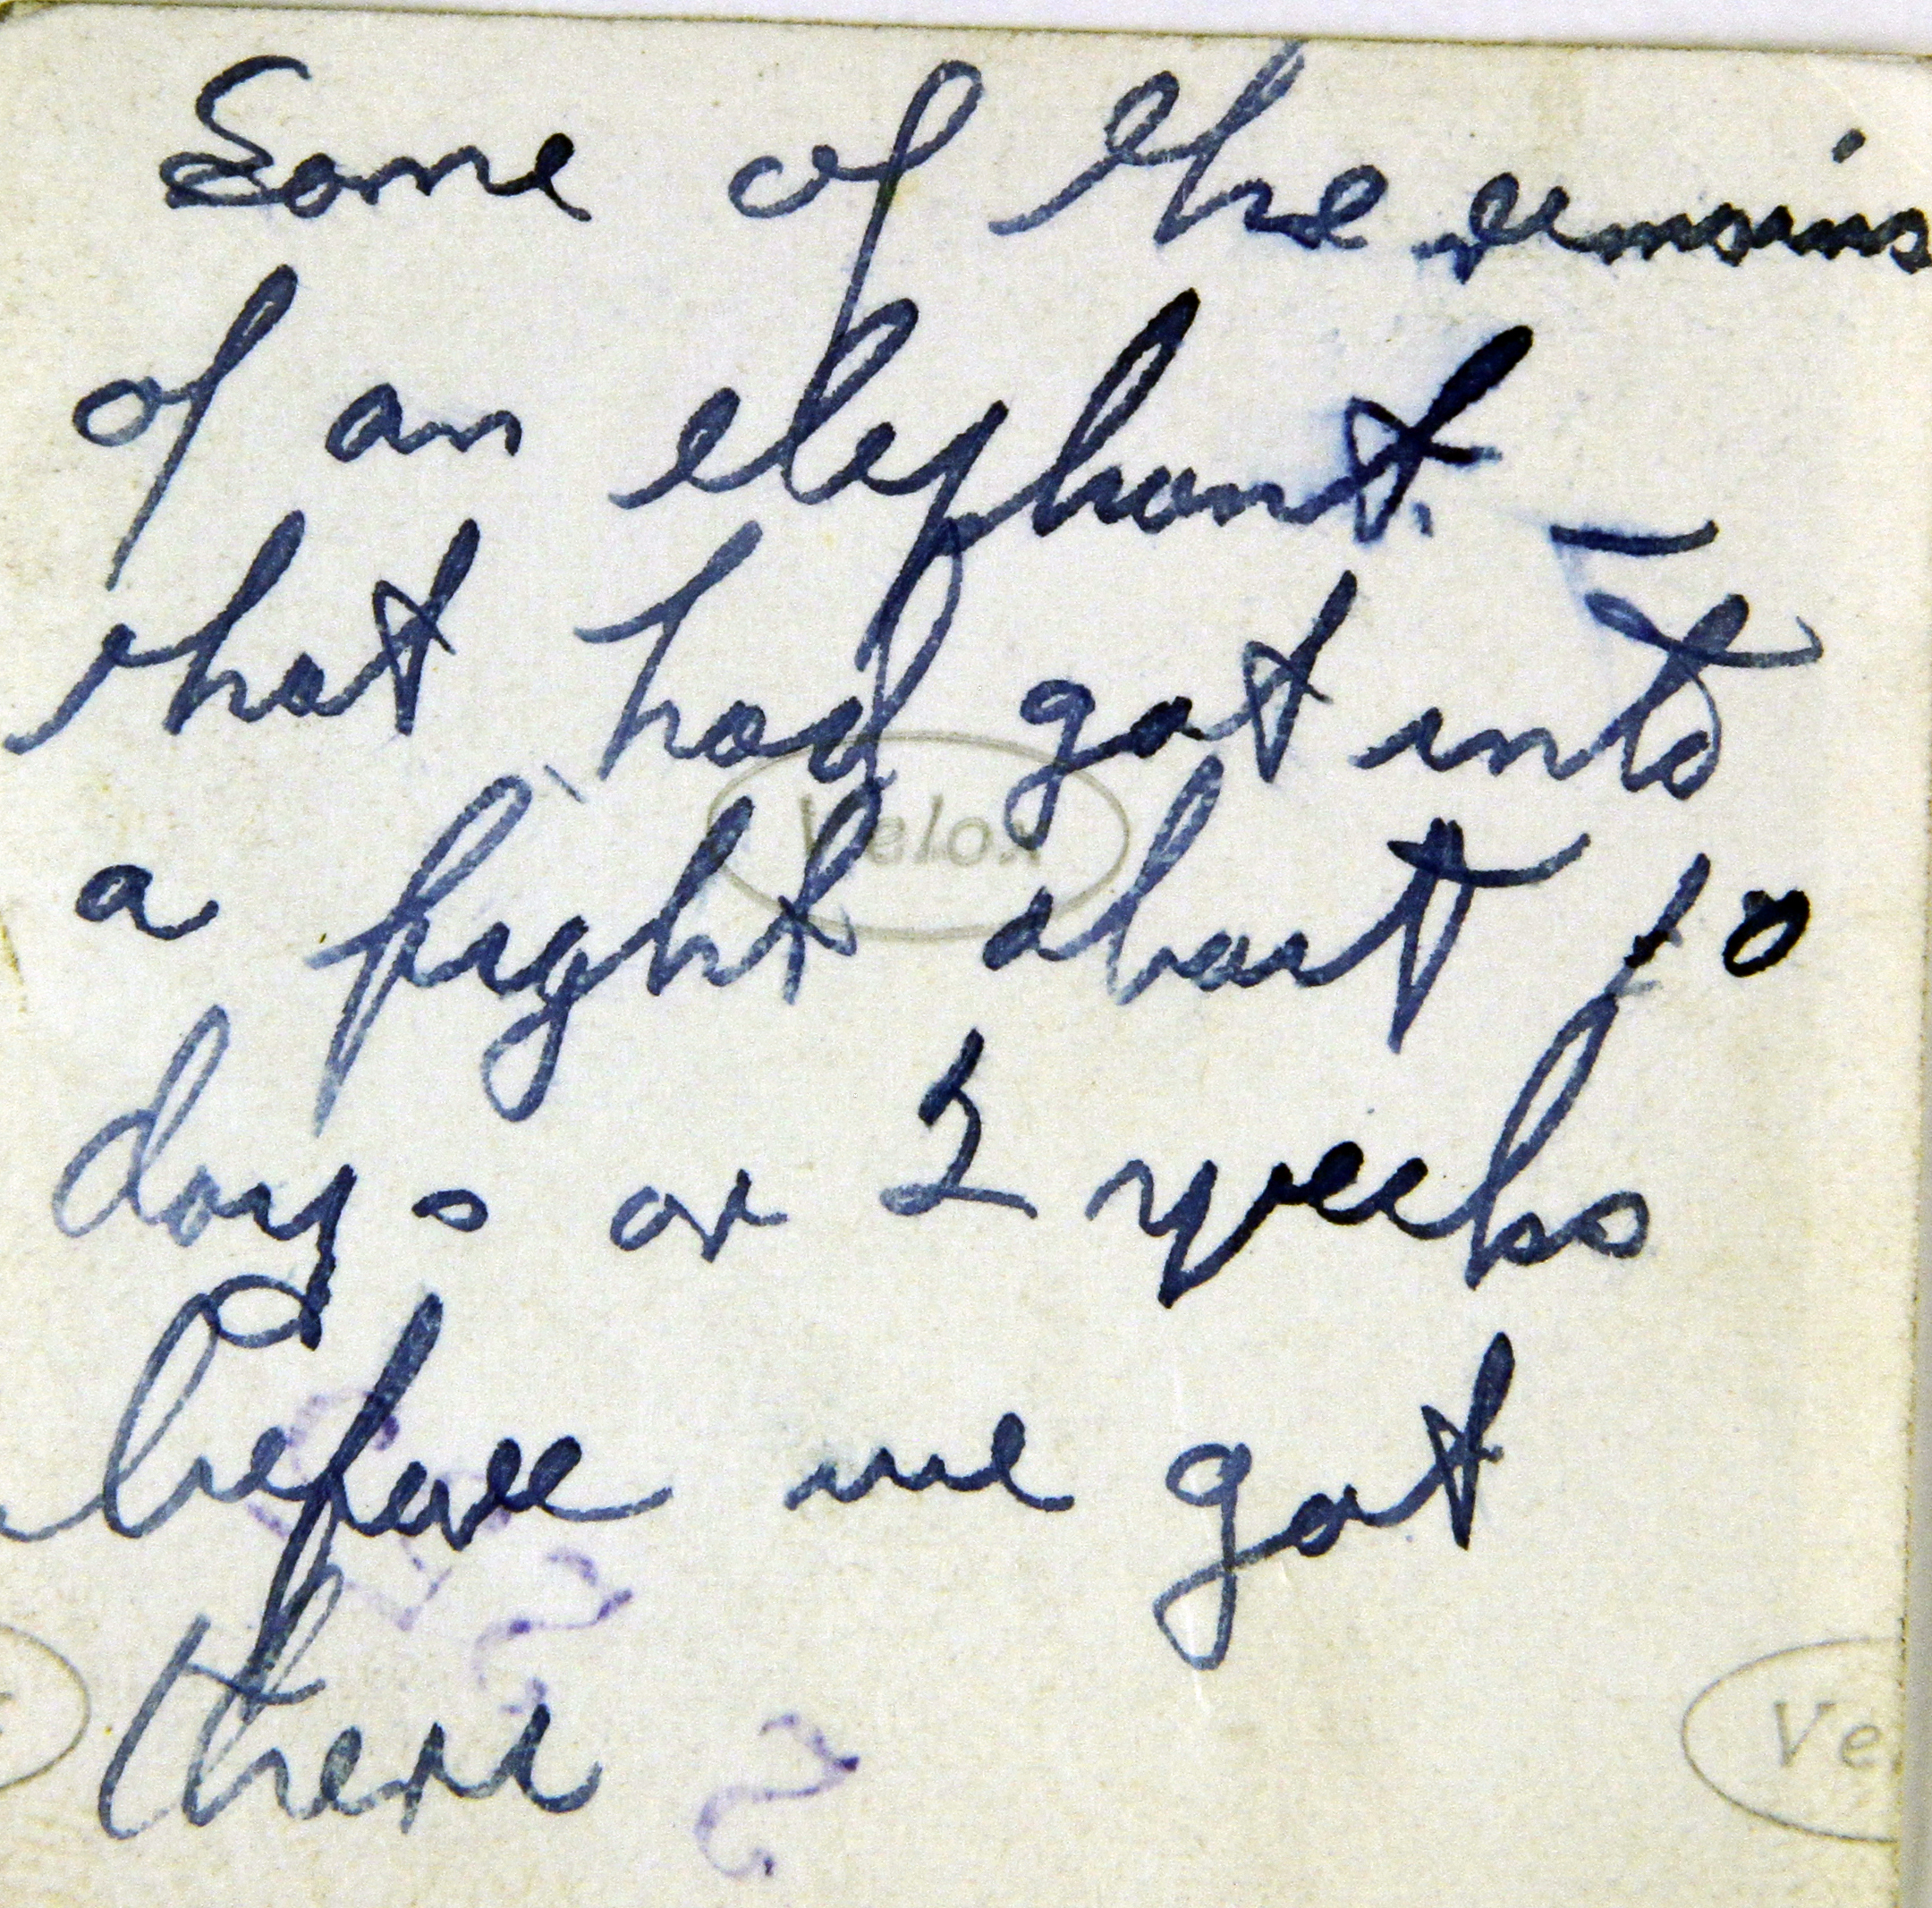 Some of the remains
of an elephant. —
that had got into
Velox
a fight about 10
days or 2 weeks
before we got
there
Ve